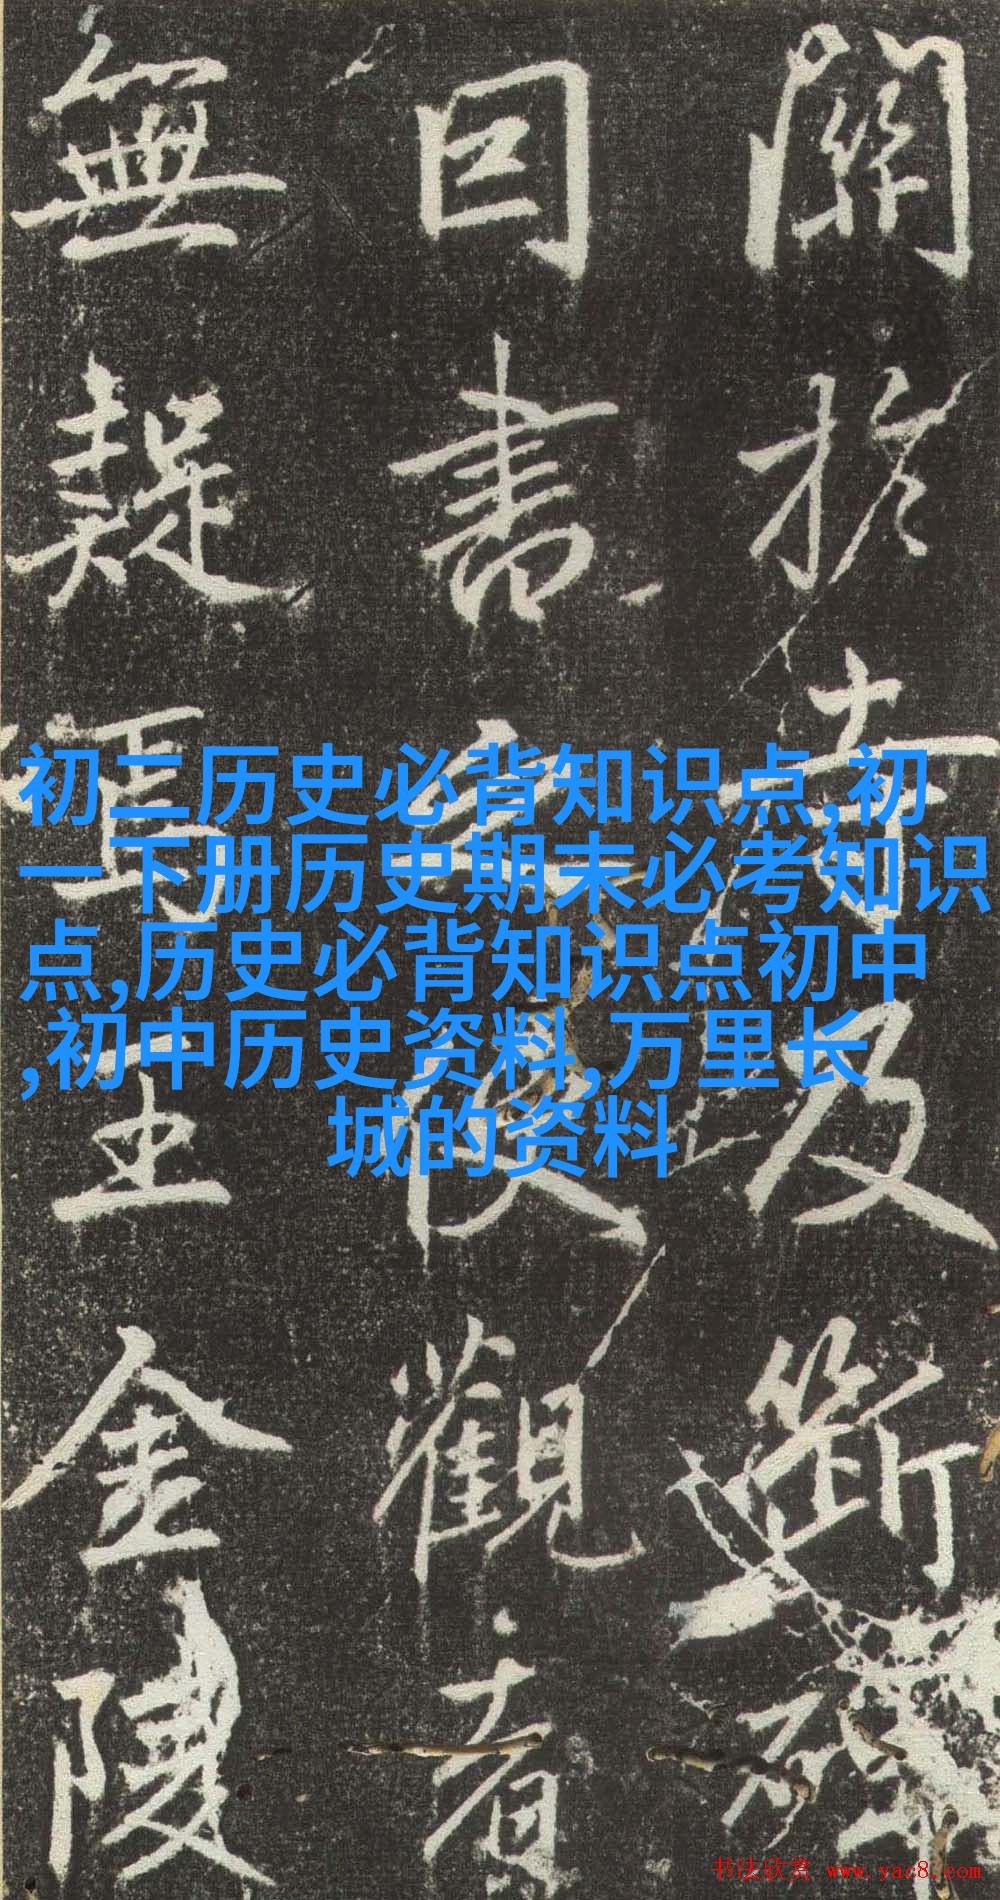 關於者及斷碑
曰書之後觀者
無疑焉王金陵
初二历史必背知识点,初
一下册历史期末必考知识
点,历史必背知识点初中
,初中历史资料,万里长
城的资料
书法欣赏 www.yac8.com